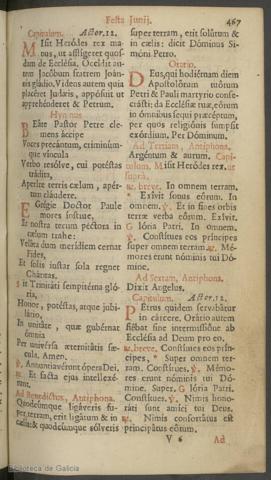 Festa Junij. 467
Capitulum. Actor. 12.
Misit Heródes rex ma-
nus, ut affligeret quos-
dam de Ecclésia. Occídit au-
tem Jacóbum fratrem Joán-
nis gládio. Videns autem quia
placéret Judæis, appósuit ut
apprehénderet & Petrum.
Hymnus
BEáte Pastor Petre cle-
mens áccipe
Voces precántum, criminúm-
que víncula
Verbo resólve, cui potéstas
trádita,
Aperíre terris cælum, apér-
tum cláudere.
EGrégie Doctor Paule
mores ínstrue,
Et nostra tecum péctora in
cælum trahe:
Veláta dum merídiem cernat
Fides,
Et solis instar sola regnet
Cháritas,
Sit Trinitáti sempitérna gló-
ria,
Honor, potéstas, atque jubi-
látio,
In unitáte, quæ gubérnat
ómnia
Per univérsa æternitátis sǽ-
cula. Amen.
℣. Annuntiavérunt ópera Dei.
℟. Et facta ejus intellexé-
runt.
Ad Benedictus, Antiphona.
Quodcúmque ligáveris su-
per terram, erit ligátum in cæ-
lis: & quodcúmque sólveris
super terram, erit solútum &
in cælis: dicit Dóminus Si-
móni Petro.
Oratio.
DEus, qui hodiérnam diem
Apostolórum tuórum
Petri & Pauli martýrio conse-
crásti: da Ecclésiæ tuæ, eórum
in ómnibus sequi præcéptum,
per quos religiónis sumpsit
exórdium. Per Dóminum.
Ad Tertiam, Antiphona.
Argéntum & aurum. Capi-
tulum. Misit Heródes rex. ut
suprà.
℟. breve. In omnem terram.
* Exívit sonus eórum. In
omnem. ℣. Et in fines orbis
terræ verba eórum. Exívit.
Glória Patri. In omnem.
℣. Constítues eos príncipes
super omnem terram. ℟. Mé-
mores erunt nóminis tui Dó-
mine.
Ad Sextam, Antiphona.
Dixit Angelus.
Capitulum. Actor. 12.
PEtrus quidem servabátur
in cárcere. Orátio autem
fiébat sine intermissióne ab
Ecclésia ad Deum pro eo.
℟. breve. Constítues eos prín-
cipes, * Super omnem ter-
ram. Constítues. ℣. Mémo-
res erunt nóminis tui Dó-
mine. Super. Glória Patri.
Constítues. ℣. Nimis hono-
ráti sunt amíci tui Deus.
℟. Nimis confortátus est
principátus eórum.
V 6 Ad
Biblioteca de Galicia